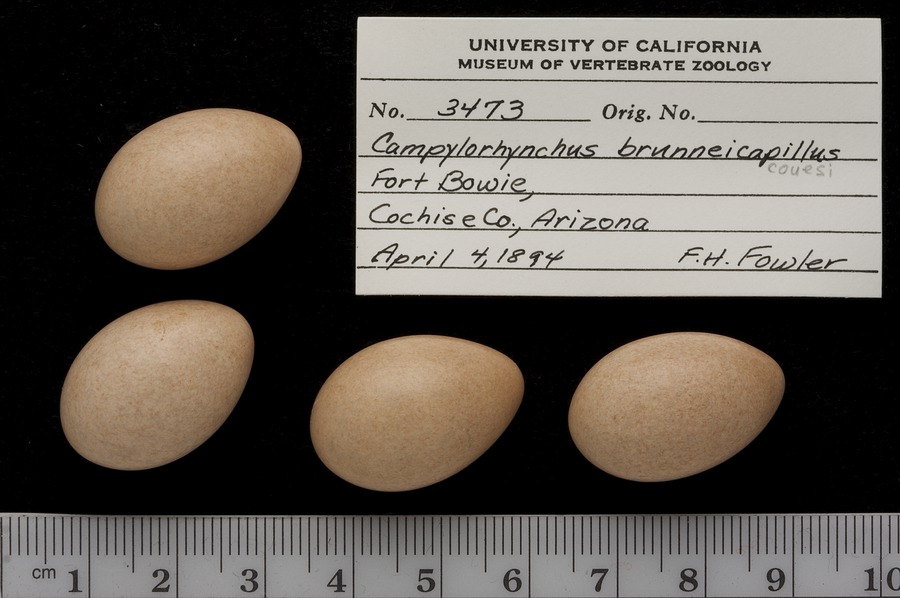 UNIVERSITY OF CALIFORNIA
MUSEUM OF VERTEBRATE ZOOLOGY
No. 3473 Orig. No.
Campylorhynchus brunneicapillus
couesi
Fort Bowie,
Cochise Co., Arizona
April 4, 1894 F.H. Fowler
cm 1 2 3 4 5 6 7 8 9 10